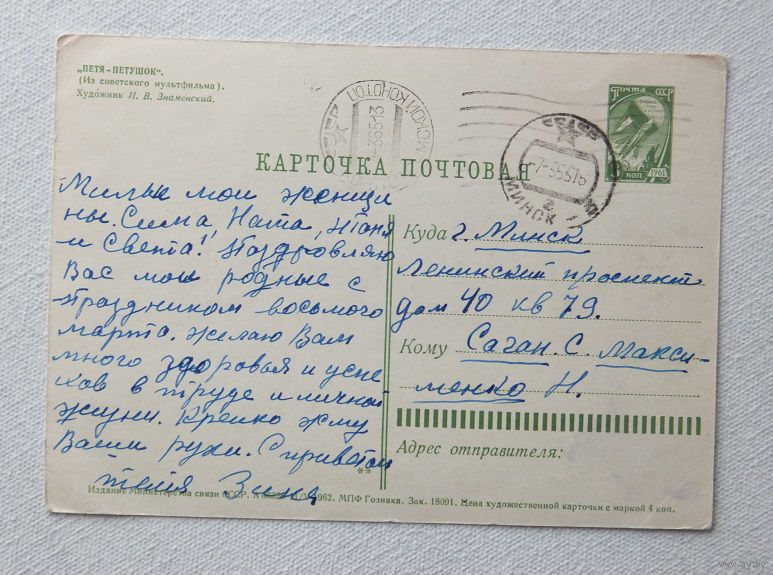 „ПЕТЯ-ПЕТУШОК".
(Из советского мультфильма).
Художник И. В. Знаменский.
Почта СССР
3 коп. 1961
КОНОТОП
КАРТОЧКА ПОЧТОВАЯ
МИНСК
Милые мои женщи
ны. Сима, Ната, Таня
и Света! Поздровляю
Вас мои родные с
праздником восьмого
марта. Желаю Вам
много здоровья и успе
хов в труде и личной
жизни. Крепко жму
Ваши руки. С приветом
тётя Зина
Куда г. Минск
Ленинский проспект
дом 40 кв 79.
Кому Саган. С Макси-
менко Н.
Адрес отправителя:
Издание Министерства связи СССР. 1962. МПФ Гознака. Зак. 18091. Цена художественной карточки с маркой 4 коп.
www.ay.by